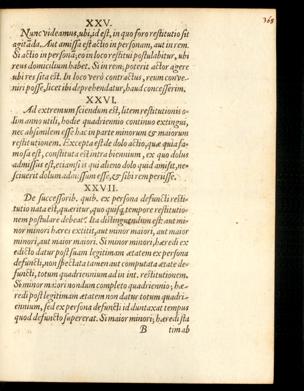 365
XXV.
Nunc videamus, ubi, id est, in quo foro restitutio sit
agitãda. Aut amissa est actio in personam, aut in rem.
Si actio in personã; eo in loco restitui postulabitur, ubi
reus domicilium habet. Si in rem; poterit actor agere
ubi res sita est. In loco verò contractus, reum conve-
niri posse, licet ibi deprehendatur, haud concesserim.
XXVI.
Ad extremum sciendum est, litem restitutionis o-
lim anno utili, hodie quadriennio continuo extingui,
nec absimilem esse hac in parte minorum & maiorum
restitutionem. Excepta est de dolo actio, quæ quia fa-
mosa est, constituta est intra biennium, ex quo dolus
admissus est, etiamsi is qui alieno dolo quid amisit, ne-
sciuerit dolum admissum esse, & sibi rem periisse.
XXVII.
De successorib. quib. ex persona defuncti resti-
tutio nata est, quæritur, quo quisq; tempore restitutio-
nem postulare debeat. Ita distinguendum est: aut mi-
nor minori hæres extitit, aut minor maiori, aut maior
minori, aut maior maiori. Si minor minori, hæredi ex
edicto datur post suam legitimam ætatem ex persona
defuncti, non spectata tamen aut computata ætate de-
functi, totum quadriennium ad in int. restitutionem.
Si minor maiori nondum completo quadriennio; hæ-
redi post legitimam ætatem non datur totum quadri-
ennium, sed ex persona defuncti id duntaxat tempus
quod defuncto supererat. Si maior minori; hæredi sta
B tim ab